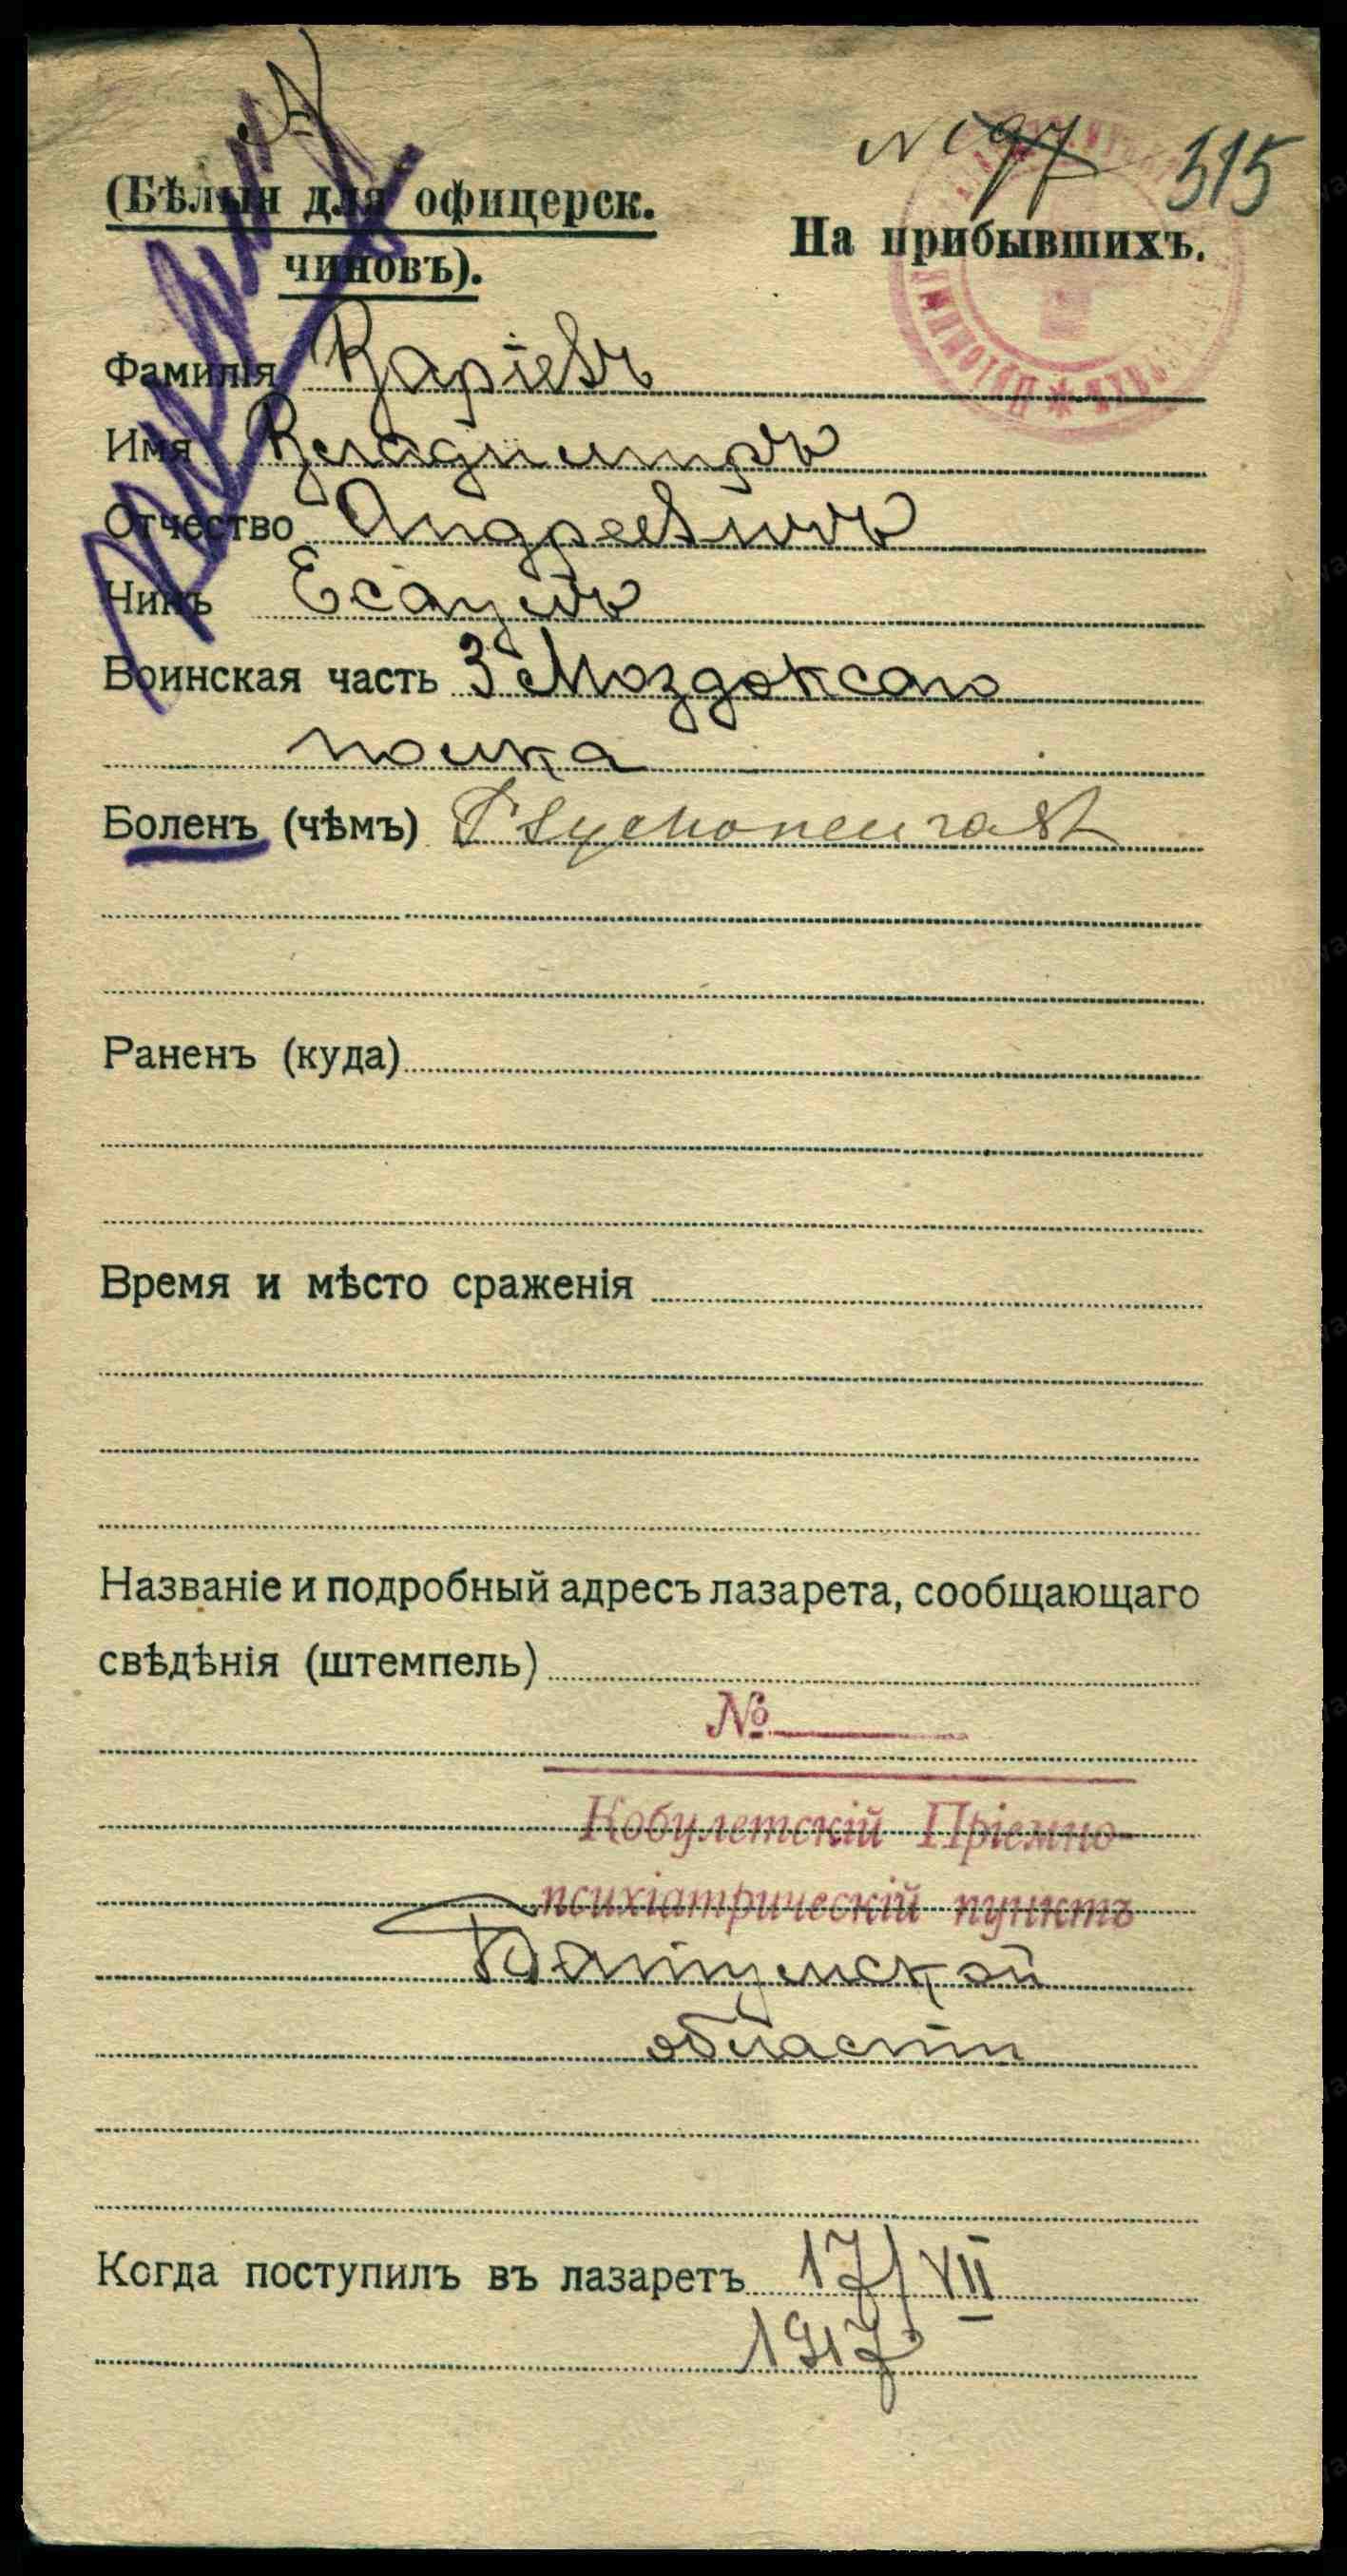 № 97 315
(Бѣлый для офицерск.
чиновъ).
На прибывшихъ.
Фамилія Каріевъ
Имя Владиміръ
Отчество Андреевичъ
Чинъ Есаулъ
Воинская часть 3 Моздокскаго
полка
Боленъ (чѣмъ) Psychoneurast
Раненъ (куда)
Время и мѣсто сраженія
Названіе и подробный адресъ лазарета, сообщающаго
свѣдѣнія (штемпель)
№
Кобулетскій Пріемно-
психіатрическій пунктъ
Батумской
области
Когда поступилъ въ лазаретъ 17/VII
1917